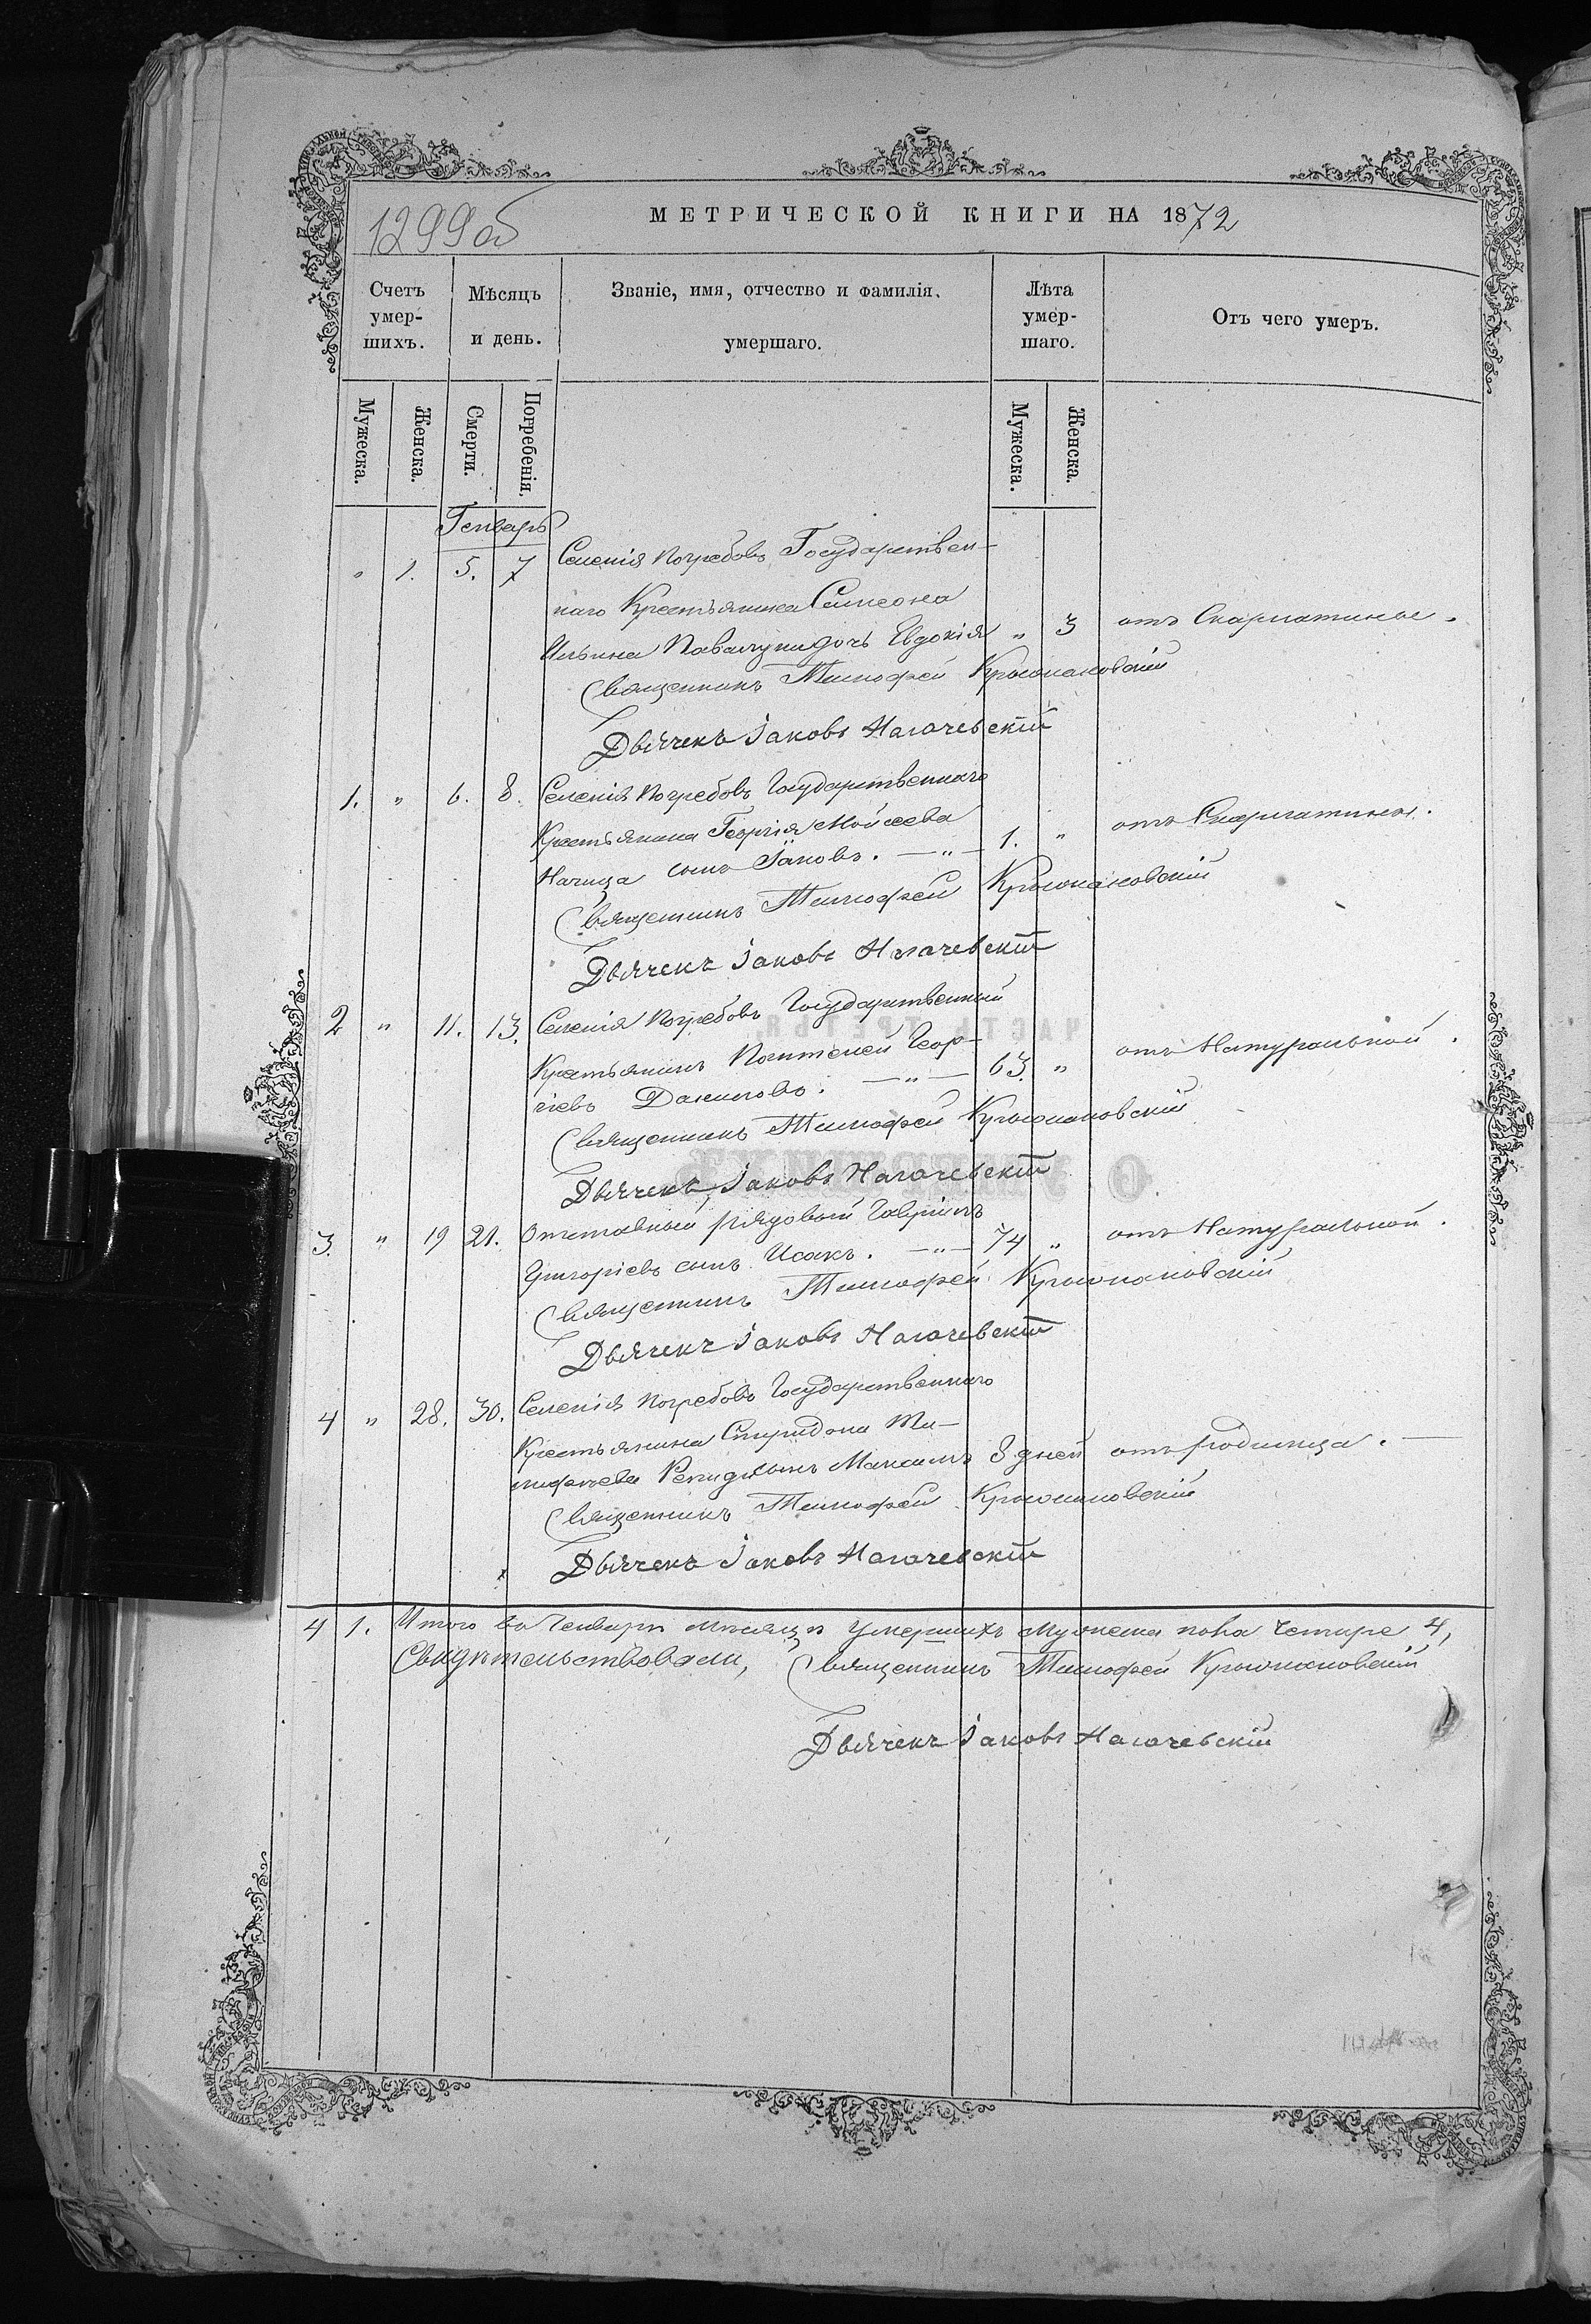 1299об
МЕТРИЧЕСКОЙ КНИГИ НА 1872
Счетъ умер-шихъ.
Мѣсяцъ и день.
Званіе, имя, отчество и фамилія. умершаго.
Лѣта умер-шаго.
Отъ чего умеръ.
Мужеска. Женска. Смерти. Погребенія. Мужеска. Женска.
Генварь
" 1. 5. 7 Селенія Погребовъ Государствен-
наго Крестьянина Симеона
Ильина дочь Евдокія " 3 отъ Скарлатины.
Священникъ Тимофей Крыжановскій
Дьячекъ Іаковъ Нагачевскій
1. " 6. 8. Селенія Погребовъ Государственнаго
Крестьянина Георгія Мойсеева
сынъ Іаковъ. — " — 1. " отъ Скарлатины.
Священникъ Тимофей Крыжановскій
Дьячекъ Іаковъ Нагачевскій
2 " 11. 13. Селенія Погребовъ Государственный
Крестьянинъ Пантелей Геор-
гіевъ Даниловъ. — " — 63. " отъ Натуральной.
Священникъ Тимофей Крыжановскій
Дьячекъ Іаковъ Нагачевскій
3. " 19 21. Отставный рядовый Гавріилъ
Григоріевъ сынъ Исакъ. — " — 74 " отъ Натуральной.
Священникъ Тимофей Крыжановскій
Дьячекъ Іаковъ Нагачевскій
4 " 28. 30. Селенія Погребовъ Государственнаго
Крестьянина Спиридона
сынъ Максимъ 8 дней отъ родимца. —
Священникъ Тимофей Крыжановскій
Дьячекъ Іаковъ Нагачевскій
4 1. Итого въ Генварѣ мѣсяцѣ Умершихъ мужеска пола четыре 4,
Свидѣтельствовали, Священникъ Тимофей Крыжановскій
Дьячекъ Іаковъ Нагачевскій